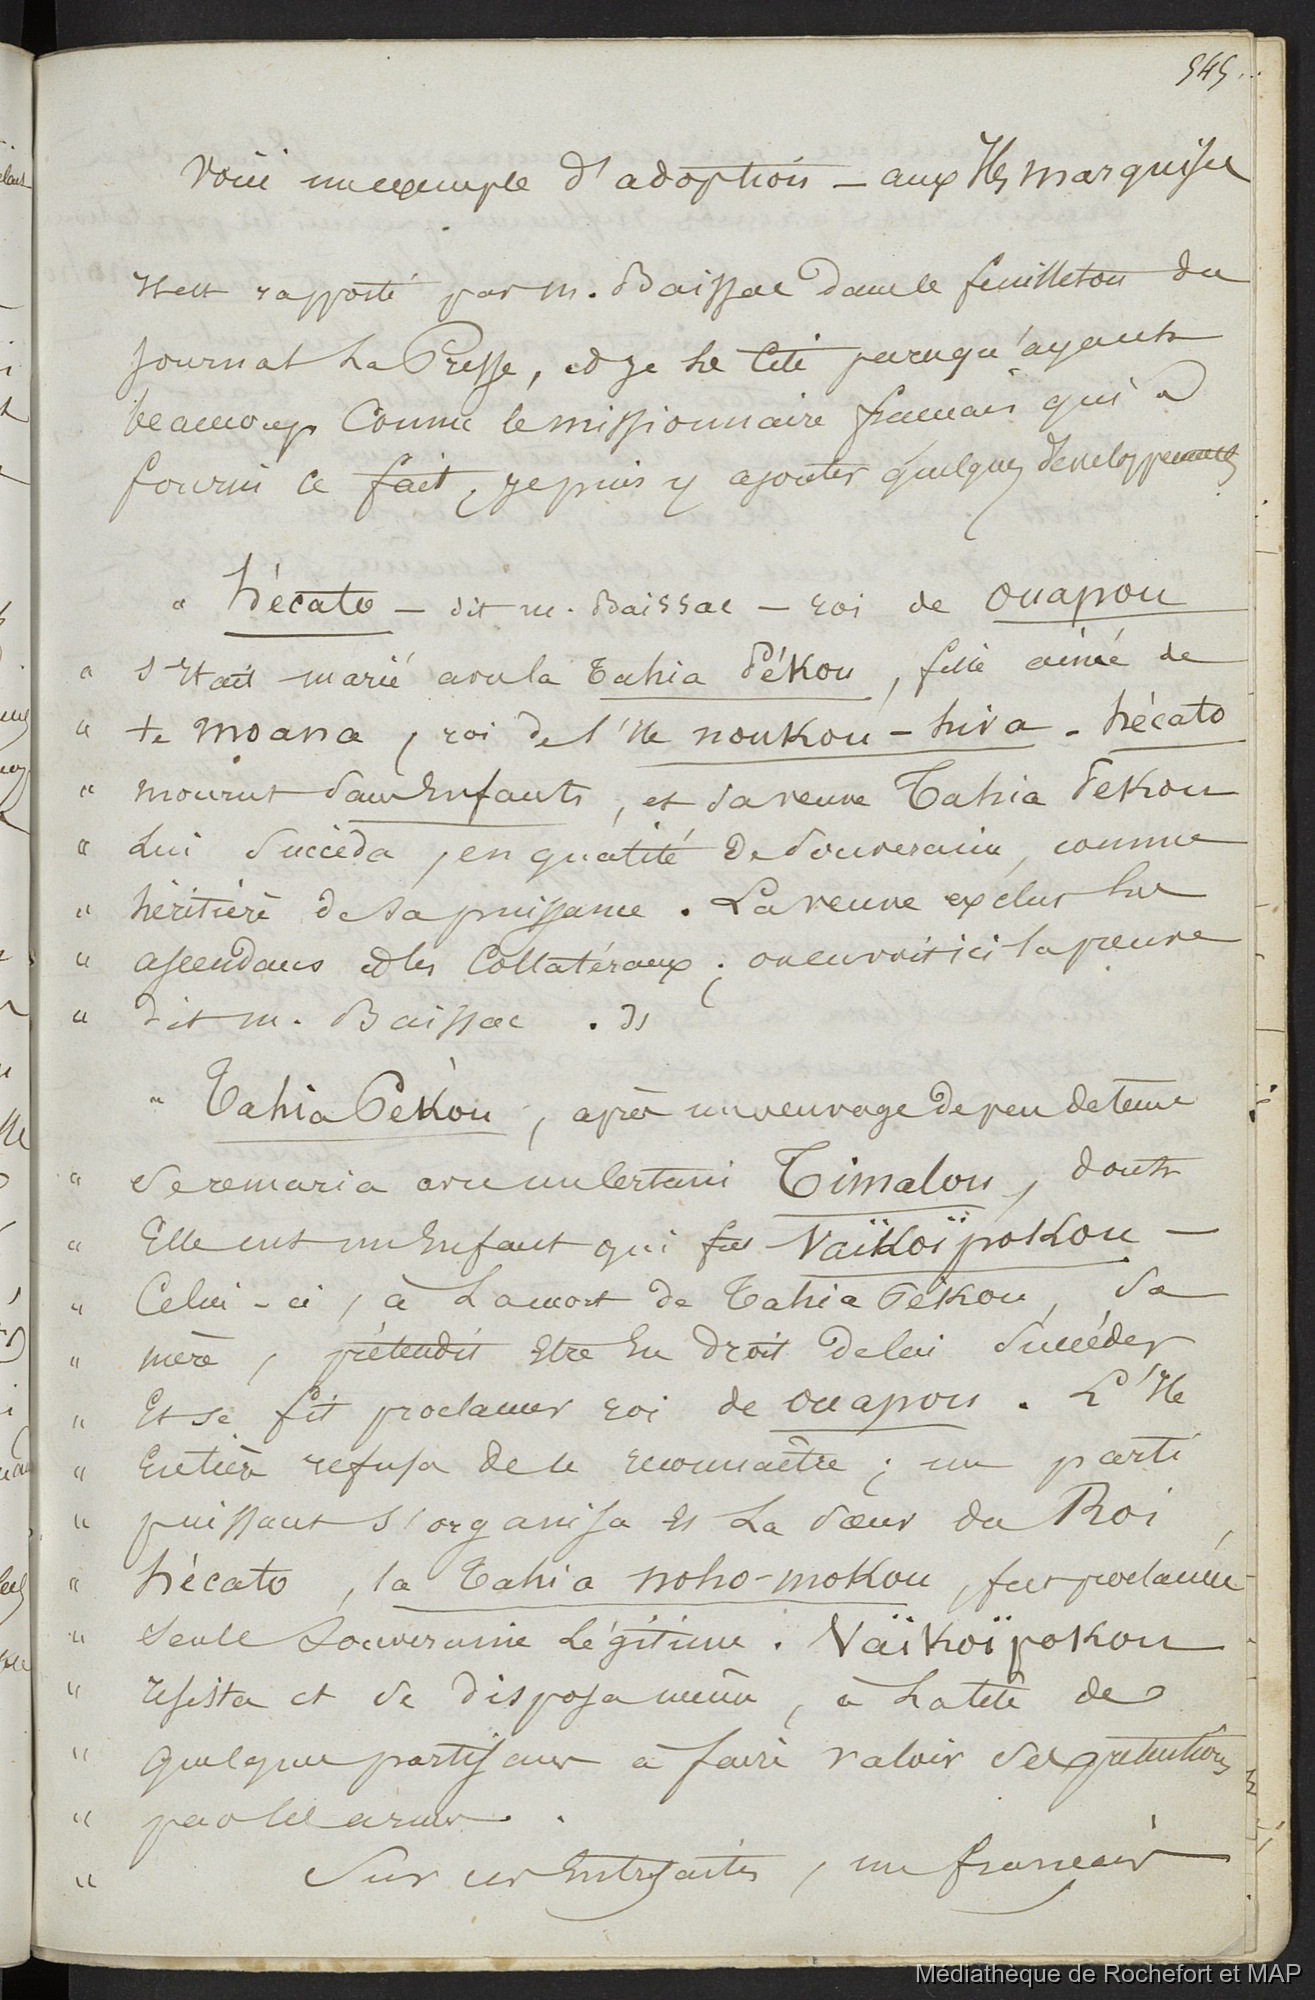 545.
Voici un exemple d'adoption – aux Iles marquises
Il est rapporté par m. Baissac dans le feuilleton du
journal La Presse, et je le cite parcequ'ayant
beaucoup connu le missionnaire francais qui a
fourni ce fait, je puis y ajouter quelques développements
" hécato – dit m. Baissac – roi de ouapou
" s'Etait marié avec la Tahia Pékou, fille ainée de
" te moana, roi de l'Ile noukou – hiva. hécato
" mourut sans Enfants, et sa veuve Tahia Pékou
" Lui succéda, en qualité de souveraine, comme
" héritière de sa puissance. La veuve exclut les
" ascendans et les Collatéraux; on en voit ici la preuve
" dit m. Baissac. "
" Tahia Pékou, après un veuvage de peu de tems
" se remaria avec un certain Timalou, dont
" Elle eut un Enfant qui fut Vaïkoïpokou –
" Celui-ci, à La mort de Tahia Pékou, sa
" mère, prétendit Etre En droit de lui succéder
" Et se fit proclamer roi de ouapou. L'Ile
" Entière refusa de le reconnaître; un parti
" puissant s'organisa et La sœur du Roi
" hécato, la Tahia noho-mokou, fut proclamée
" seule souveraine Légitime. Vaïkoïpokou
" résista et se disposa même, à La tête de
" quelques partisans à faire valoir ses prétentions
" par les armes.
" Sur ces Entrefaites, un francais
Médiathèque de Rochefort et MAP